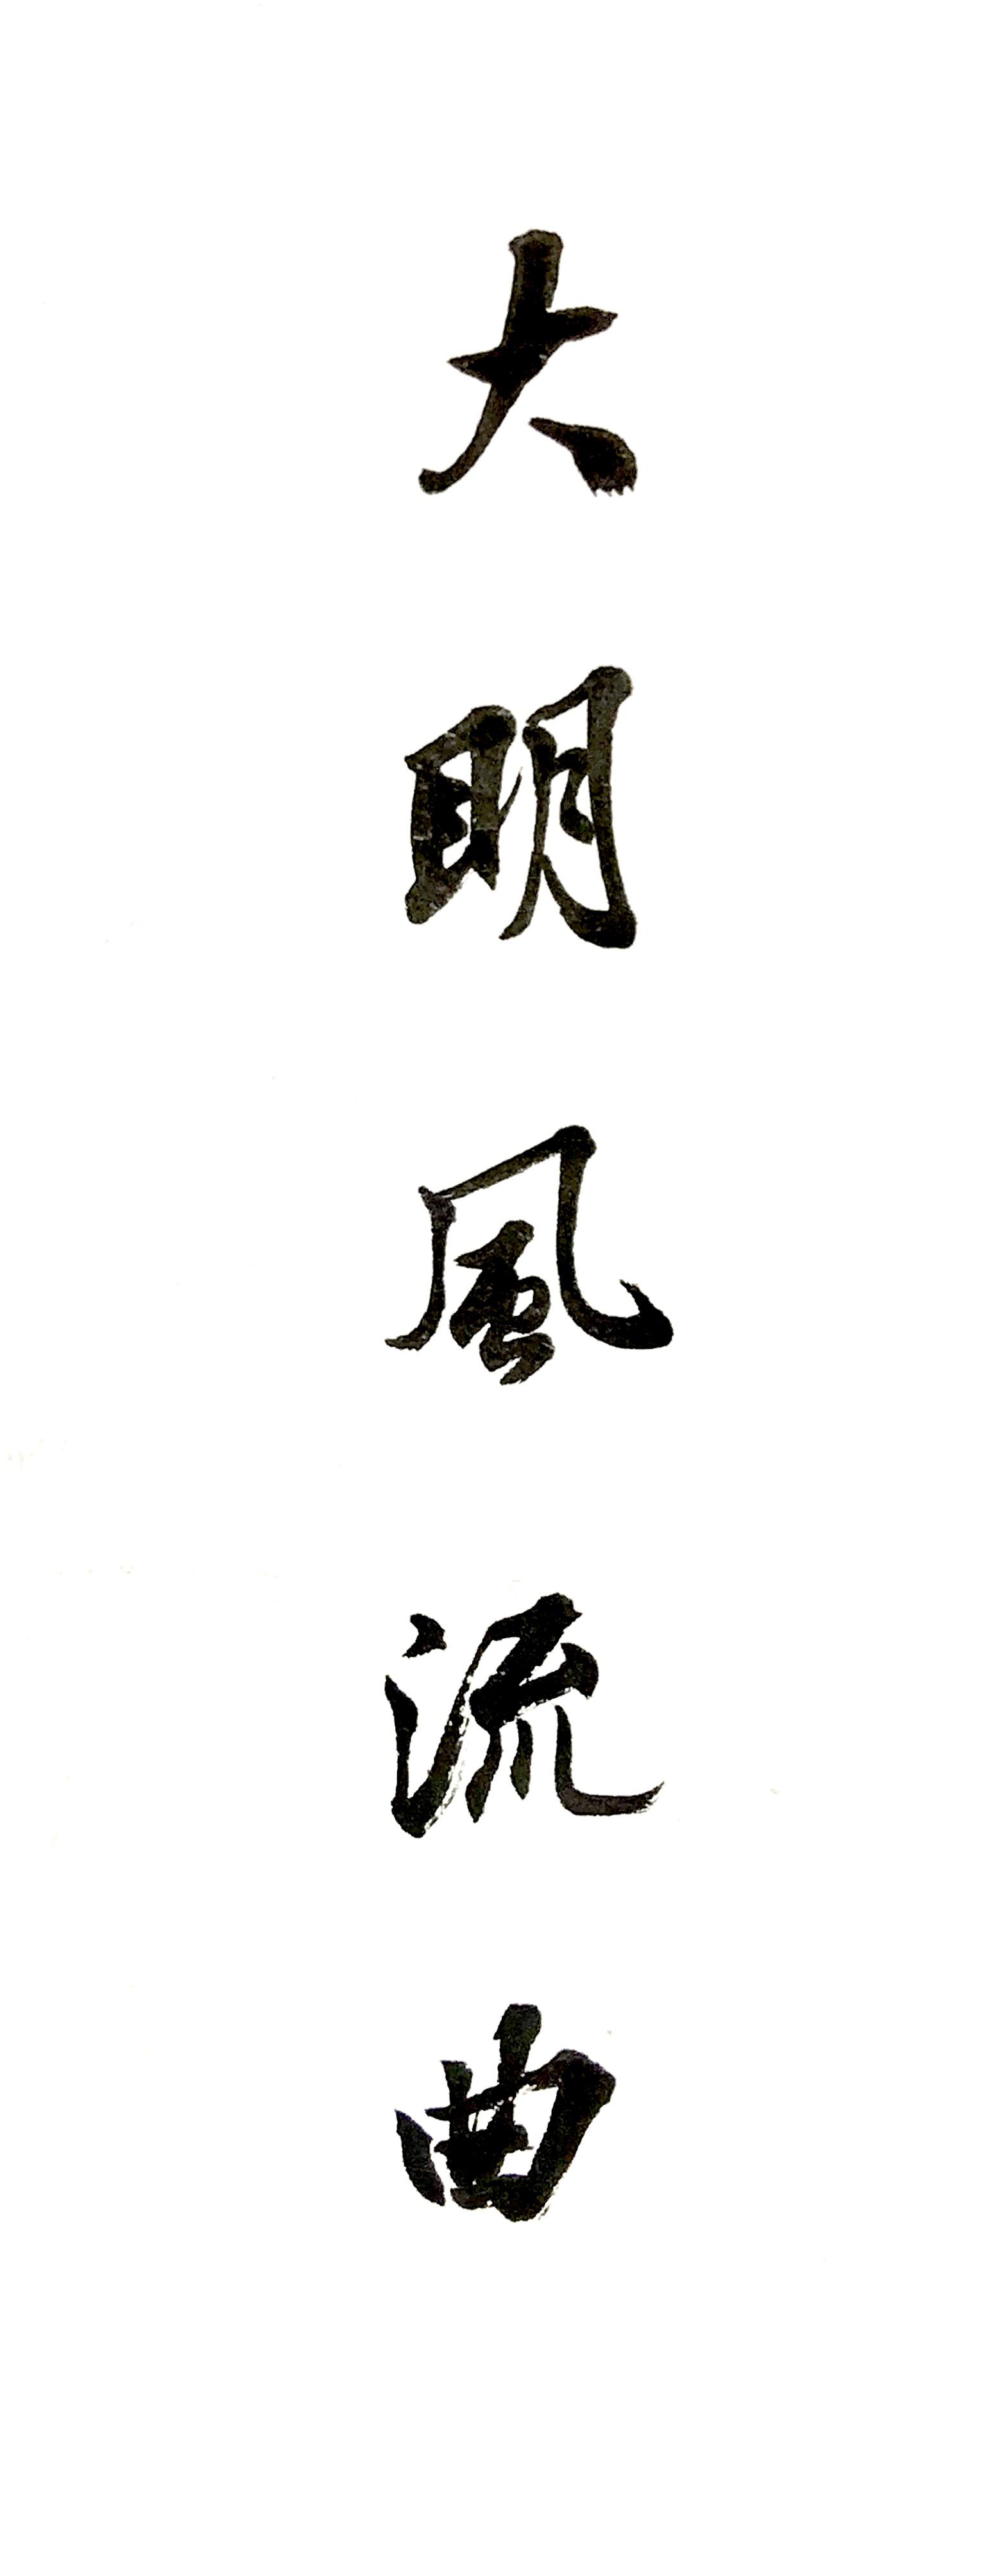 大明風流曲